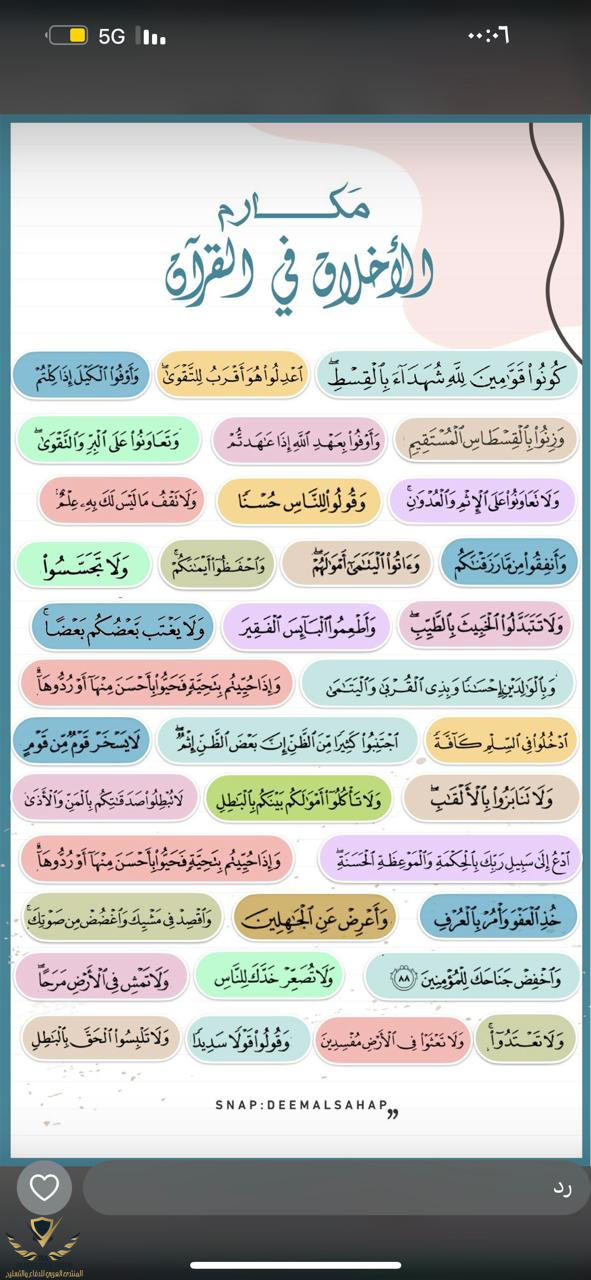 ٠٠:٠٦ 5G
مكارم
الأخلاق في القرآن
كُونُوا۟ قَوَّٰمِينَ لِلَّهِ شُهَدَآءَ بِٱلْقِسْطِ ۖ ٱعْدِلُوا۟ هُوَ أَقْرَبُ لِلتَّقْوَىٰ ۖ وَأَوْفُوا۟ ٱلْكَيْلَ إِذَا كِلْتُمْ
وَزِنُوا۟ بِٱلْقِسْطَاسِ ٱلْمُسْتَقِيمِ ۚ وَأَوْفُوا۟ بِعَهْدِ ٱللَّهِ إِذَا عَٰهَدتُّمْ وَتَعَاوَنُوا۟ عَلَى ٱلْبِرِّ وَٱلتَّقْوَىٰ ۖ
وَلَا تَعَاوَنُوا۟ عَلَى ٱلْإِثْمِ وَٱلْعُدْوَٰنِ ۚ وَقُولُوا۟ لِلنَّاسِ حُسْنًا وَلَا تَقْفُ مَا لَيْسَ لَكَ بِهِۦ عِلْمٌ ۚ
وَأَنفِقُوا۟ مِن مَّا رَزَقْنَٰكُم وَءَاتُوا۟ ٱلْيَتَٰمَىٰٓ أَمْوَٰلَهُمْ ۖ وَٱحْفَظُوٓا۟ أَيْمَٰنَكُمْ ۚ وَلَا تَجَسَّسُوا۟
وَلَا تَتَبَدَّلُوا۟ ٱلْخَبِيثَ بِٱلطَّيِّبِ ۖ وَأَطْعِمُوا۟ ٱلْبَآئِسَ ٱلْفَقِيرَ وَلَا يَغْتَب بَّعْضُكُم بَعْضًا ۚ
وَبِٱلْوَٰلِدَيْنِ إِحْسَٰنًا وَبِذِى ٱلْقُرْبَىٰ وَٱلْيَتَٰمَىٰ وَإِذَا حُيِّيتُم بِتَحِيَّةٍ فَحَيُّوا۟ بِأَحْسَنَ مِنْهَآ أَوْ رُدُّوهَآ ۗ
ٱدْخُلُوا۟ فِى ٱلسِّلْمِ كَآفَّةً ٱجْتَنِبُوا۟ كَثِيرًا مِّنَ ٱلظَّنِّ إِنَّ بَعْضَ ٱلظَّنِّ إِثْمٌ ۖ لَا يَسْخَرْ قَوْمٌ مِّن قَوْمٍ
وَلَا تَنَابَزُوا۟ بِٱلْأَلْقَٰبِ ۖ وَلَا تَأْكُلُوٓا۟ أَمْوَٰلَكُم بَيْنَكُم بِٱلْبَٰطِلِ لَا تُبْطِلُوا۟ صَدَقَٰتِكُم بِٱلْمَنِّ وَٱلْأَذَىٰ
ٱدْعُ إِلَىٰ سَبِيلِ رَبِّكَ بِٱلْحِكْمَةِ وَٱلْمَوْعِظَةِ ٱلْحَسَنَةِ ۖ وَإِذَا حُيِّيتُم بِتَحِيَّةٍ فَحَيُّوا۟ بِأَحْسَنَ مِنْهَآ أَوْ رُدُّوهَآ ۗ
خُذِ ٱلْعَفْوَ وَأْمُرْ بِٱلْعُرْفِ وَأَعْرِضْ عَنِ ٱلْجَٰهِلِينَ وَٱقْصِدْ فِى مَشْيِكَ وَٱغْضُضْ مِن صَوْتِكَ ۚ
وَٱخْفِضْ جَنَاحَكَ لِلْمُؤْمِنِينَ ٨٨ وَلَا تُصَعِّرْ خَدَّكَ لِلنَّاسِ وَلَا تَمْشِ فِى ٱلْأَرْضِ مَرَحًا ۖ
وَلَا تَعْتَدُوٓا۟ ۚ وَلَا تَعْثَوْا۟ فِى ٱلْأَرْضِ مُفْسِدِينَ وَقُولُوا۟ قَوْلًا سَدِيدًا وَلَا تَلْبِسُوا۟ ٱلْحَقَّ بِٱلْبَٰطِلِ
SNAP:DEEMALSAHAP
رد
المنتدى العربي للدفاع والتسليح